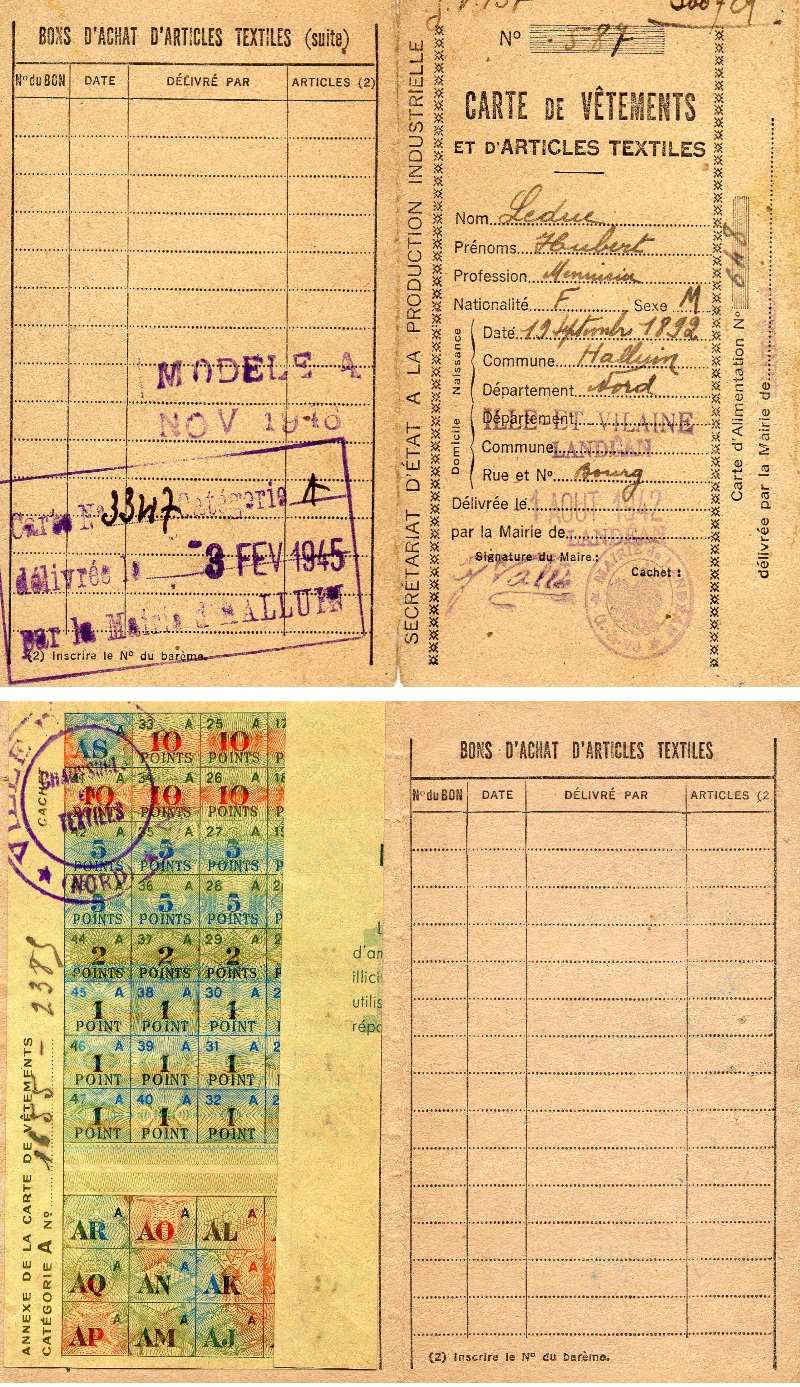 BONS D'ACHAT D'ARTICLES TEXTILES (suite)
No du BON DATE DÉLIVRÉ PAR ARTICLES (2)
MODELE A
NOV 1946
Carte No 3347 Catégorie A
délivrée le -3 FEV 1945
par la Mairie d'HALLUIN
(2) Inscrire le No du barème.
SECRÉTARIAT D'ÉTAT A LA PRODUCTION INDUSTRIELLE
No 587
CARTE DE VÊTEMENTS
ET D'ARTICLES TEXTILES
Nom Leduc
Prénoms Hubert
Profession Menuisier
Nationalité F Sexe M
Naissance
Date 19 Septembre 1892
Commune Halluin
Département Nord
Domicile
Département ILLE ET VILAINE
Commune LANDÉAN
Rue et No Bourg
Délivrée le 1 AOUT 1942
par la Mairie de LANDÉAN
Signature du Maire :
Cachet :
MAIRIE de LANDÉAN
Carte d'Alimentation No 648
délivrée par la Mairie de
ANNEXE DE LA CARTE DE VÊTEMENTS
CATÉGORIE A No 1655 - 2385
CACHET
TEXTILES
(NORD)
AS A 33 A 10 POINTS 25 A 10 POINTS 17
41 10 POINTS 34 10 POINTS 26 A 10 POINTS 18
42 5 POINTS 35 A 5 POINTS 27 A 5 POINTS
5 POINTS 36 A 5 POINTS 28 A 5 POINTS
44 A 2 POINTS 37 A 2 POINTS 29 A 2 POINTS
45 A 1 POINT 38 A 1 POINT 30 A 1 POINT
46 A 1 POINT 39 A 1 POINT 31 A 1 POINT
47 A 1 POINT 40 A 1 POINT 32 A 1 POINT
AR A AO A AL A
AQ A AN A AK A
AP A AM A AJ A
d'ar
illici
utilis
répo
BONS D'ACHAT D'ARTICLES TEXTILES
No du BON DATE DÉLIVRÉ PAR ARTICLES (2
(2) Inscrire le No du barème.